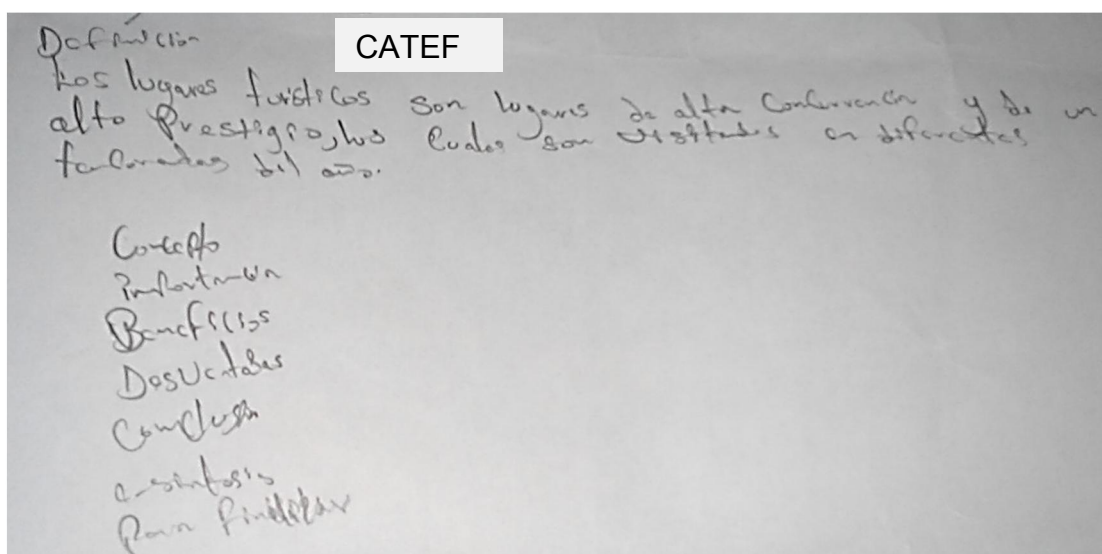 Definición
CATEF
Los lugares turísticos son lugares de alta concurrencia y de un
alto Prestigio, los cuales son visitados en diferentes
temporadas del año.
Concepto
importancia
Beneficios
Desventajas
Conclusión
en síntesis
Para finalizar